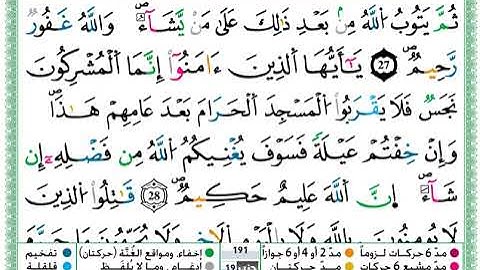 ثُمَّ يَتُوبُ ٱللَّهُ مِنۢ بَعْدِ ذَٰلِكَ عَلَىٰ مَن يَشَآءُۗ وَٱللَّهُ غَفُورٌ
رَّحِيمٌ ٢٧ يَٰٓأَيُّهَا ٱلَّذِينَ ءَامَنُوٓا۟ إِنَّمَا ٱلْمُشْرِكُونَ
نَجَسٌ فَلَا يَقْرَبُوا۟ ٱلْمَسْجِدَ ٱلْحَرَامَ بَعْدَ عَامِهِمْ هَٰذَاۚ
وَإِنْ خِفْتُمْ عَيْلَةً فَسَوْفَ يُغْنِيكُمُ ٱللَّهُ مِن فَضْلِهِۦٓ إِن
شَآءَۚ إِنَّ ٱللَّهَ عَلِيمٌ حَكِيمٌ ٢٨ قَٰتِلُوا۟ ٱلَّذِينَ
لَا يُؤْمِنُونَ بِٱللَّهِ وَلَا بِٱلْيَوْمِ ٱلْءَاخِرِ وَلَا يُحَرِّمُونَ مَا حَرَّمَ
مدّ ٦ حركات لزوماً مدّ ٢ أو ٤ أو ٦ جوازاً 191 إخفاء، ومواقع الغُنَّة (حركتان) تفخيم
مدّ مشبع ٦ حركات مدّ حركتان إدغام، وما لا يُلفَظ قلقلة